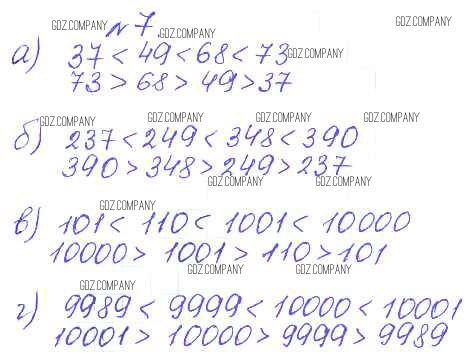 GDZ.COMPANY № 7. GDZ.COMPANY GDZ.COMPANY
а) 37 < 49 < 68 < 73 GDZ.COMPANY
73 > 68 > 49 > 37
GDZ.COMPANY GDZ.COMPANY GDZ.COMPANY GDZ.COMPANY
б) 237 < 249 < 348 < 390
390 > 348 > 249 > 237
GDZ.COMPANY GDZ.COMPANY
GDZ.COMPANY
в) 101 < 110 < 1001 < 10000
10000 > 1001 > 110 > 101
GDZ.COMPANY GDZ.COMPANY
GDZ.COMPANY
г) 9989 < 9999 < 10000 < 10001
10001 > 10000 > 9999 > 9989